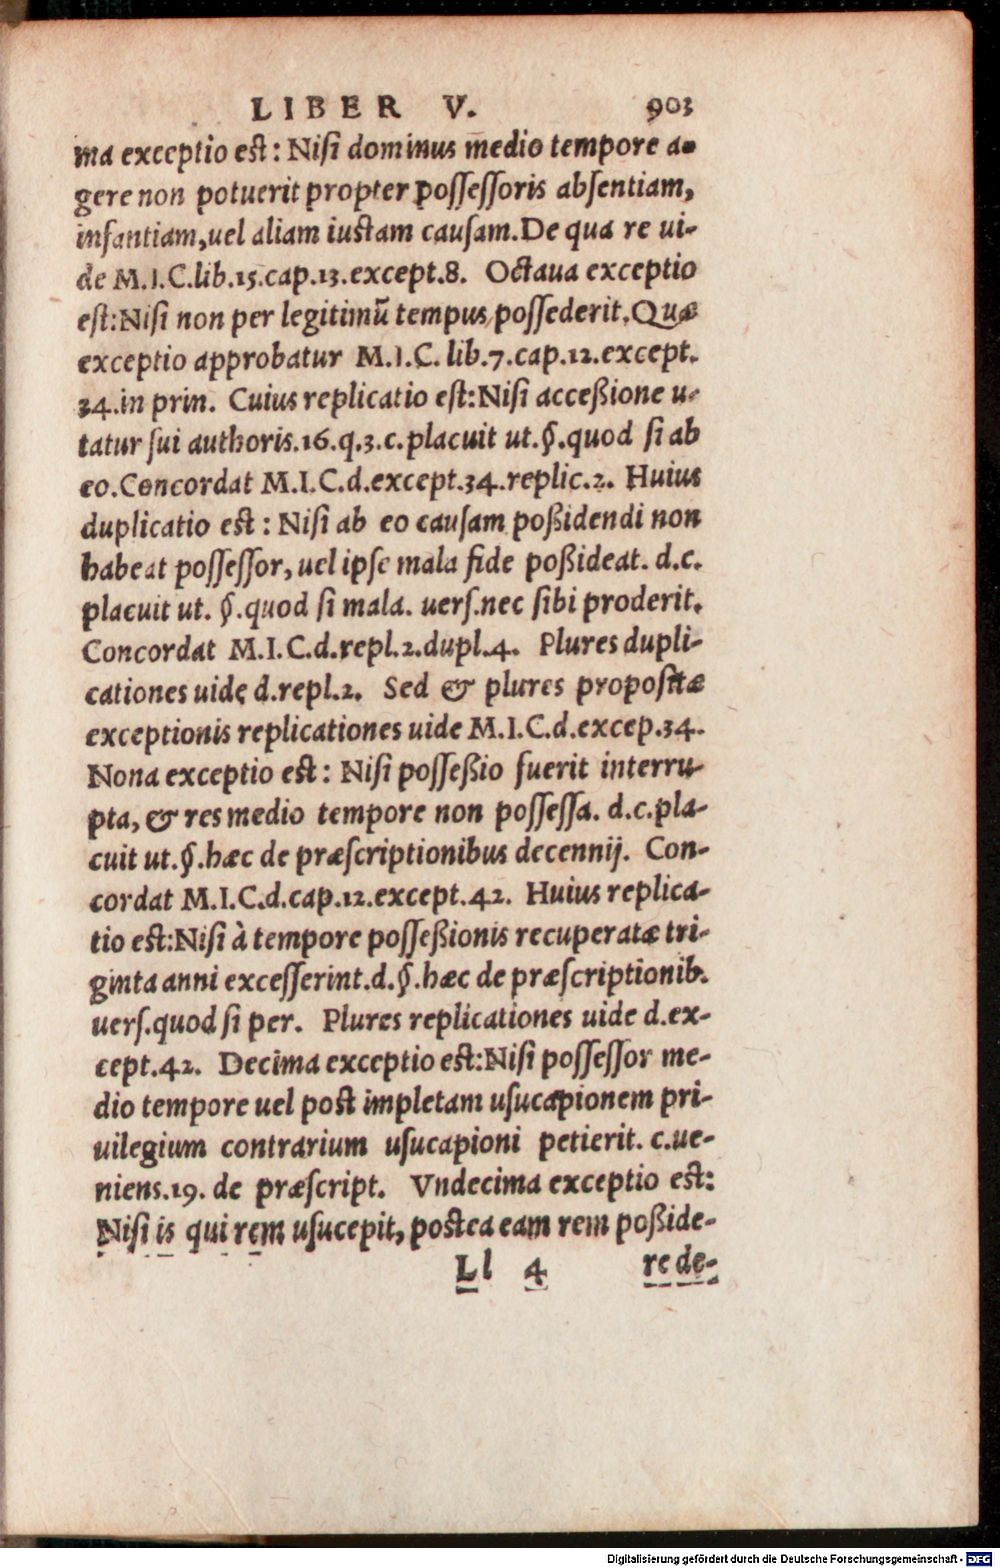 LIBER V. 903
ma exceptio est: Nisi dominus medio tempore a-
gere non potuerit propter possessoris absentiam,
infantiam, uel aliam iustam causam. De qua re ui-
de M.I.C. lib.15. cap.13. except.8. Octaua exceptio
est: Nisi non per legitimū tempus possederit. Quæ
exceptio approbatur M.I.C. lib.7. cap.12. except.
34. in prin. Cuius replicatio est: Nisi acceßione u-
tatur sui authoris. 16. q.3. c. placuit ut. §. quod si ab
eo. Concordat M.I.C. d. except.34. replic.2. Huius
duplicatio est: Nisi ab eo causam poßidendi non
habeat possessor, uel ipse mala fide poßideat. d.c.
placuit ut. §. quod si mala. uers. nec sibi proderit.
Concordat M.I.C. d. repl.2. dupl.4. Plures dupli-
cationes uide d. repl.2. Sed & plures propositæ
exceptionis replicationes uide M.I.C. d. excep.34.
Nona exceptio est: Nisi posseßio fuerit interru-
pta, & res medio tempore non possessa. d.c. pla-
cuit ut. §. hæc de præscriptionibus decennij. Con-
cordat M.I.C. d. cap.12. except.42. Huius replica-
tio est: Nisi à tempore posseßionis recuperatæ tri-
ginta anni excesserint. d. §. hæc de præscriptionib.
uers. quod si per. Plures replicationes uide d. ex-
cept.42. Decima exceptio est: Nisi possessor me-
dio tempore uel post impletam usucapionem pri-
uilegium contrarium usucapioni petierit. c. ue-
niens. 19. de præscript. Vndecima exceptio est:
Nisi is qui rem usucepit, postea eam rem poßide-
Ll 4 re de-
Digitalisierung gefördert durch die Deutsche Forschungsgemeinschaft - DFG